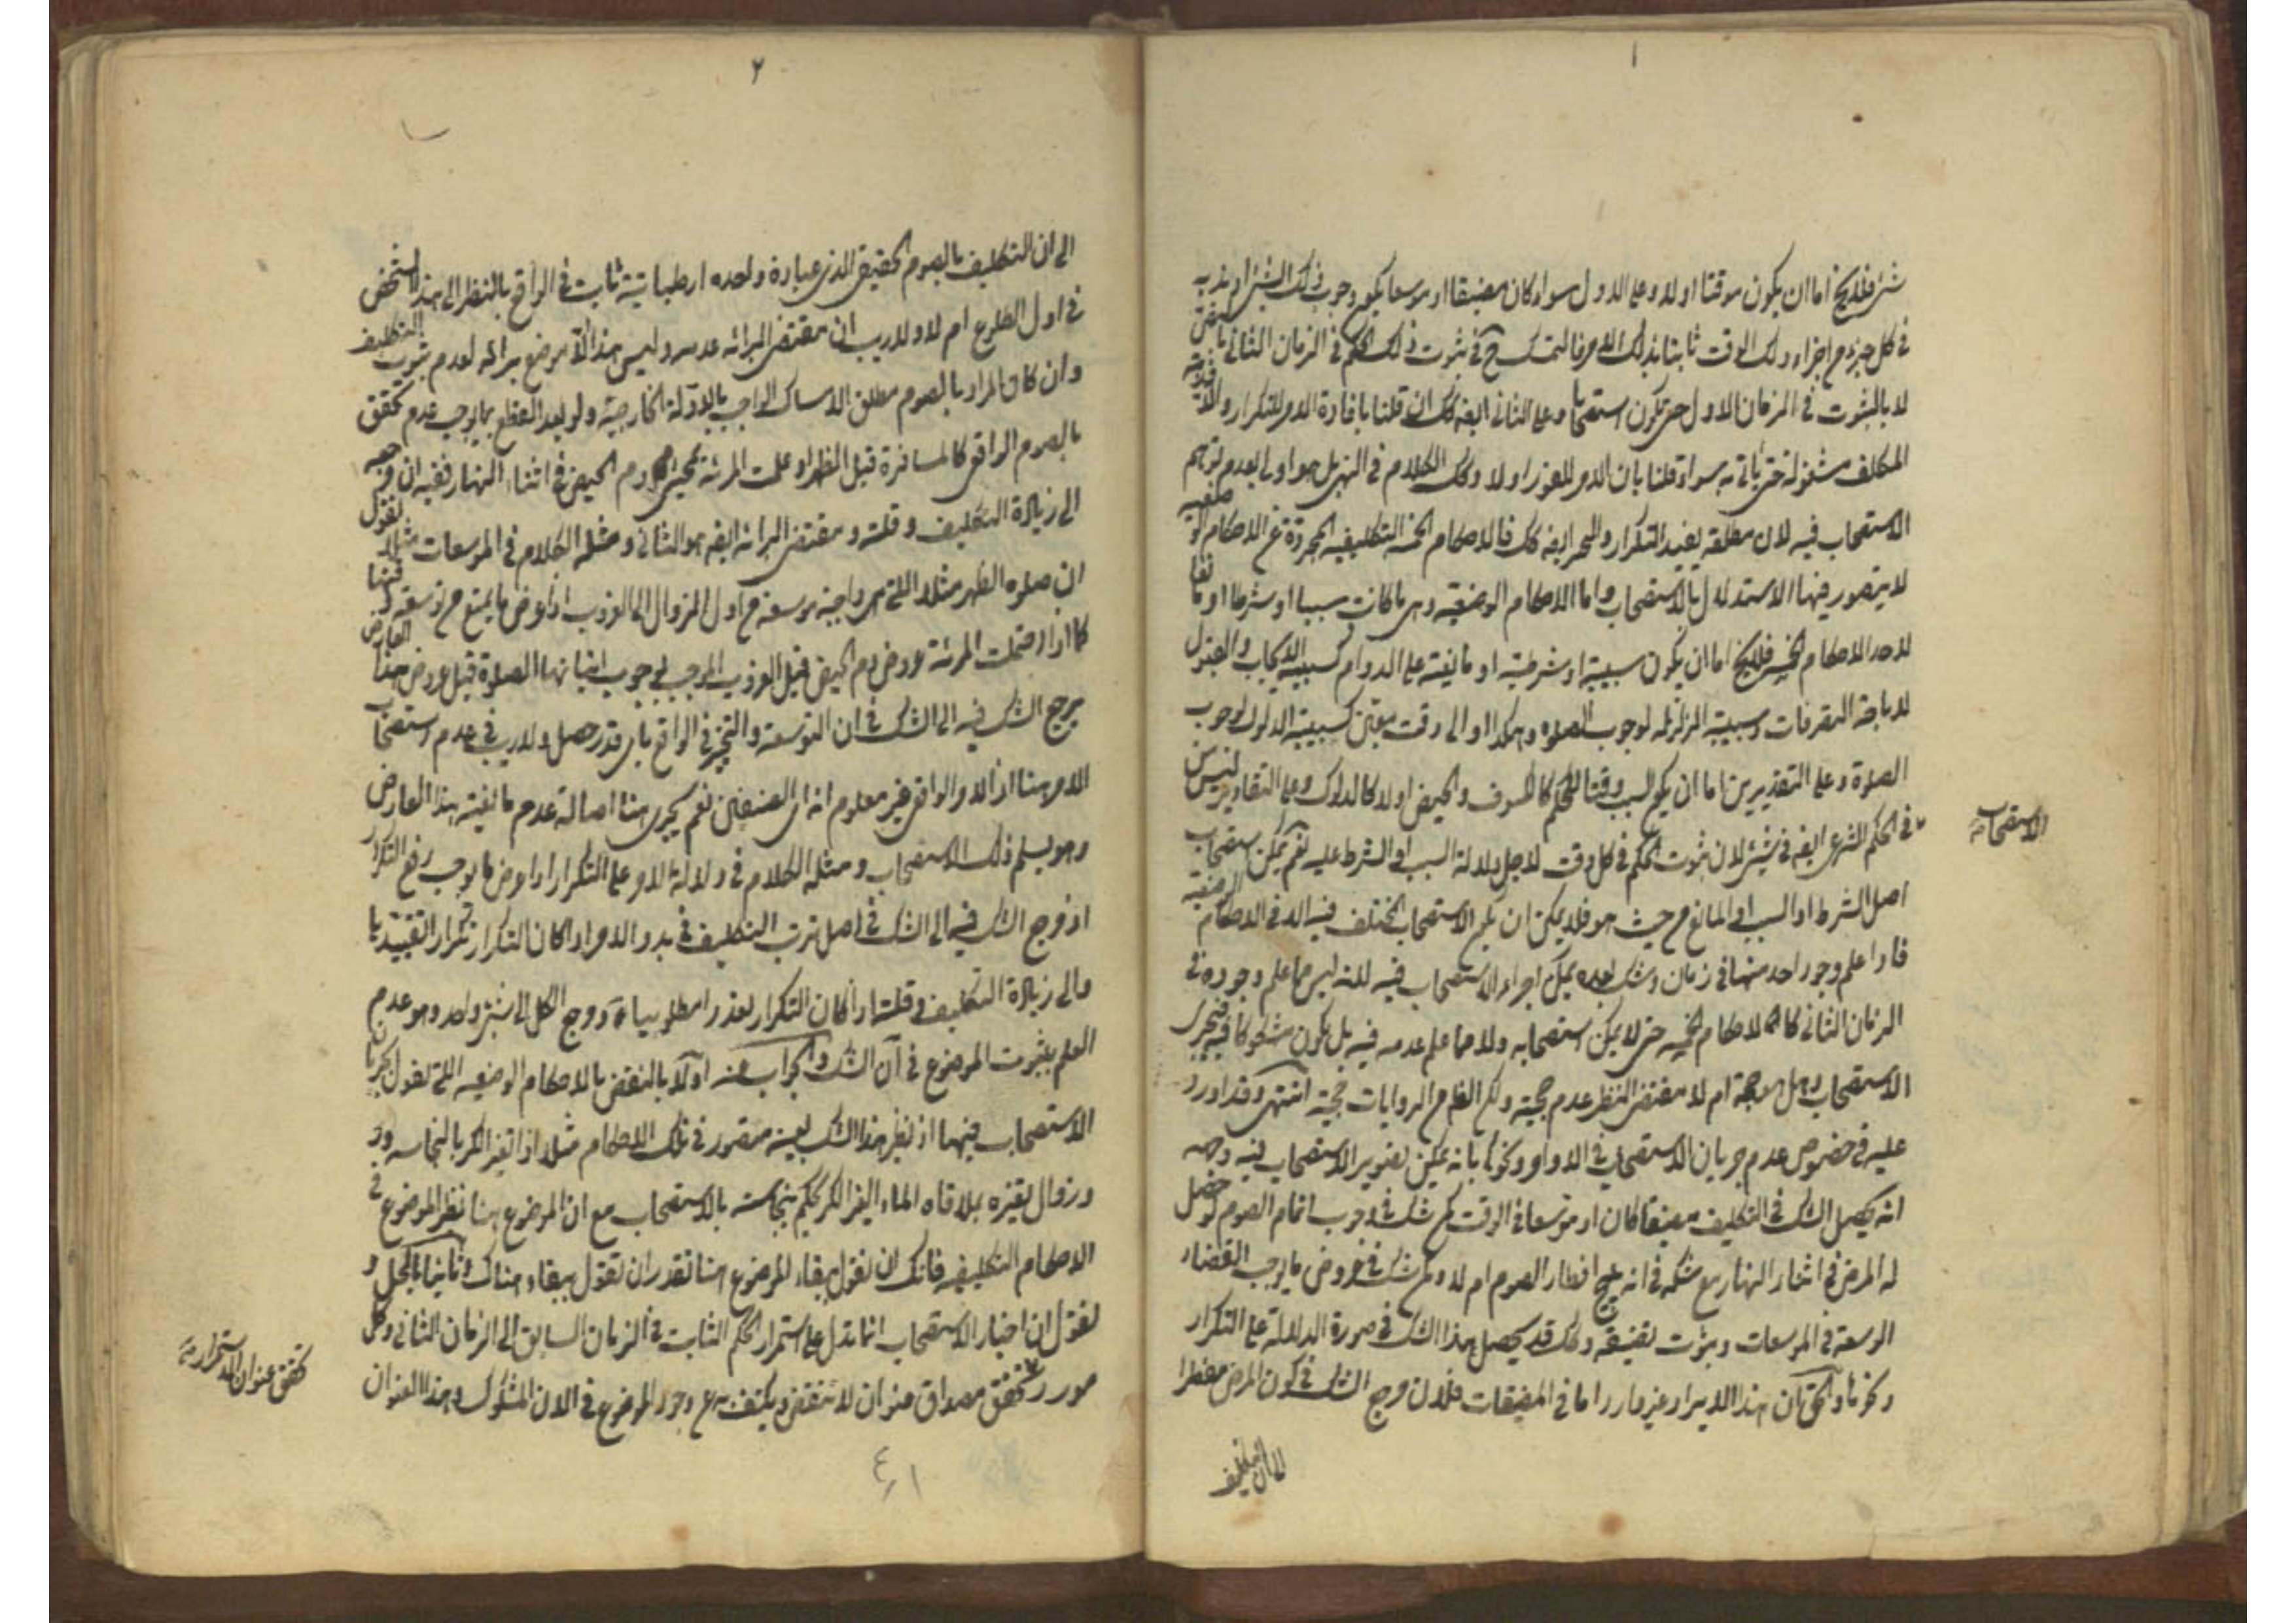 ١
شئ فلا يخ اما ان يكون موقتا اولا وعلى الاول سواء كان مضيقا او موسعا يكون وجوب ذلك الشئ او ندبه
في كل جزء من اجزاء ذلك الوقت ثابتا بذلك الامر فالتمسك ح في ثبوت ذلك الحكم في الزمان الثاني بالنص
لا بالثبوت في الزمان الاول حتى يكون استصحابا وعلى الثاني ايضه كك ان قلنا بافادة الامر للتكرار والا فذمة
المكلف مشغولة حتى ياتي به سواء قلنا بان الامر للفور اولا وكك الكلام في النهي بل هو اولى بعدم توهم
الاستصحاب فيه لان مطلقه يفيد التكرار والتخيير ايضه كك فالاحكام الخمسة التكليفيه المجردة عن الاحكام الوضعيه
لا يتصور فيها الاستدلال بالاستصحاب واما الاحكام الوضعيه وهي ما كانت سببا او شرطا او مانعا
لاحد الاحكام الخمسة فلا يخ اما ان يكون سببية او شرطية او مانعية على الدوام كسببية الايجاب والقبول
لاباحة التصرفات وسببية الزلزلة لوجوب الصلوه وهكذا او الى وقت معين كسببية الدلوك لوجوب
الصلوة وعلى التقديرين اما ان يكون السبب وقتا للحكم كالكسوف والحيض اولا كالدلوك وعلى التقادير ليس
في الحكم الشرعي ايضه في شئ لان ثبوت الحكم في كل وقت لاجل دلالة السبب او الشرط عليه نعم يمكن استصحاب
الاستصحاب
اصل الشرط او السبب او المانع من حيث هو فلا يمكن ان يكون الاستصحاب المختلف فيه الا في الاحكام الوضعية
فاذا علم وجود احد منها في زمان وشك بعده يمكن اجراء الاستصحاب فيه لانه ليس مما علم وجوده في
الزمان الثاني كالاحكام الخمسه حتى لا يمكن استصحابه ولا مما علم عدمه فيه بل يكون مشكوكا فيه فيجرى
الاستصحاب وهل هو حجة ام لا مقتضى النظر عدم حجيته ولكن الظاهر من الروايات حجيته انتهى وقد اورد
عليه في خصوص عدم جريان الاستصحاب في الاوامر ونحوها بانه يمكن تصوير الاستصحاب فيه وجهه
انه يحصل الشك في التكليف مضيقا كان او موسعا في الوقت كمن شك في وجوب اتمام الصوم لو حصل
له المرض في اثناء النهار مع شكه في انه يبيح افطار الصوم ام لا وكمن شك في عروض ما يوجب القضاء
الوسعة في الموسعات وثبوت تضيقه وكك قد يحصل هذا الشك في صورة الدلالة على التكرار
ونحوها والحق ان هذا الايراد غير وارد اما في المضيقات فلان مرجع الشك في كون المرض مفطرا
الى ان التكليف
٢
الى ان التكليف بالصوم الحقيقي الذي عبادة واحده ارتباطية ثابت في الواقع بالنظر الى هذا الشخص
في اول الطلوع ام لا ولا ريب ان مقتضى البرائه عدمه وليس هذا الا موضع براءة لعدم ثبوت التكليف
وان كان المراد بالصوم مطلق الامساك الواجب بالادلة الخارجية ولو بعد القطع بما يوجب عدم تحقق
الصوم الواقعي كالمسافرة قبل الظهر او علمت المرئة بمجيئ دم الحيض في اثناء النهار ففيه ان مرجعه
الى زيادة التكليف وقلته ومقتضى البرائه ايضه هو الثاني ومثله الكلام في الموسعات مثلا نقول
ان صلوه الظهر مثلا التي هي واجبة موسعة من اول الزوال الى الغروب اذا عرض ما يمنع من توسعته
كما اذا احتملت المرئة عروض دم الحيض قبل الغروب الموجب لوجوب اتيانها الصلوة قبل عروض هذا العارض
يرجع الشك فيه الى الشك في ان التوسعة والتخيير في الواقع باى قدر حصل ولا ريب في عدم استصحاب
الامر هنا اذ الامر الواقعي غير معلوم انه اى الصنفين نعم يجرى هنا اصالة عدم مانعية هذا العارض
وهو يسلم ذلك الاستصحاب ومثله الكلام في دلالة الامر على التكرار اذا عرض ما يوجب رفع التكرار
اذ مرجع الشك فيه الى الشك في اصل ترتب التكليف في بدو الامر اذا كان التكرار تكرار التقييديا
والى زيادة التكليف وقلته اذا كان التكرار تعددا مطلوبيا ومرجع الكل الى شئ واحد وهو عدم
العلم بثبوت الموضوع في آن الشك والجواب عنه اولا بالنقض بالاحكام الوضعيه التي تقول بجريان
الاستصحاب فيها اذ نظير هذا الشك بعينه متصور في تلك الاحكام مثلا اذا تغير الكر بالنجاسه
وزوال تغيره بملاقاه الماء الغير الكر نحكم بنجاسته بالاستصحاب مع ان الموضوع هنا نظير الموضوع في
الاحكام التكليفيه فانك ان تقول ببقاء الموضوع هنا نقدر ان نقول ببقاءه هناك وثانيا بالحل و
نقول ان اخبار الاستصحاب انما تدل على استمرار الحكم الثابت في الزمان السابق الى الزمان الثاني وكل
مورد تحقق مصداق عنوان لا تنقض ويكتفى به مع وجود الموضوع في الان المشكوك وهذا العنوان
تحقق عنوان الاستمرار